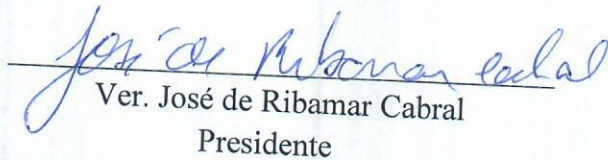 José de Ribamar Cabral
Ver. José de Ribamar Cabral
Presidente